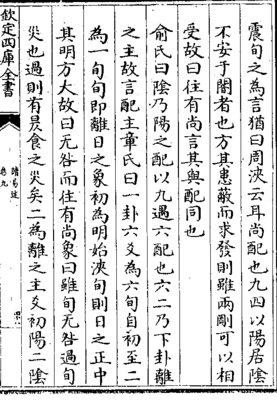 震旬之為言猶曰周浹云耳尚配也九四以陽居陰
不安于闇者也方其患蔽而求發則雖兩剛可以相
受故曰往有尚言其與配同也
俞氏曰陰乃陽之配以九遇六配也六二乃下卦離
之主故言配主章氏曰一卦六爻為六旬自初至二
為一旬旬即離日之象初為明始浹旬則日之正中
其明方大故曰无咎而往有尚象曰雖旬无咎過旬
災也過則有昃食之災矣二為離之主爻初陽二陰
欽定四庫全書
讀易述
卷九